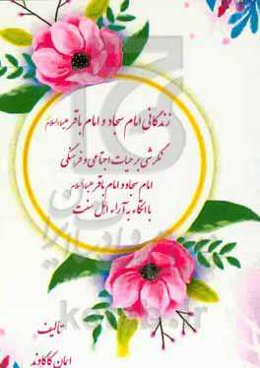 زندگانی امام سجاد و امام باقر علیهماالسلام
نگرشی بر حیات اجتماعی و فرهنگی
امام سجاد و امام باقر علیهماالسلام
با اتکاء به آراء اهل سنت
تالیف
ایمان کاکاوند